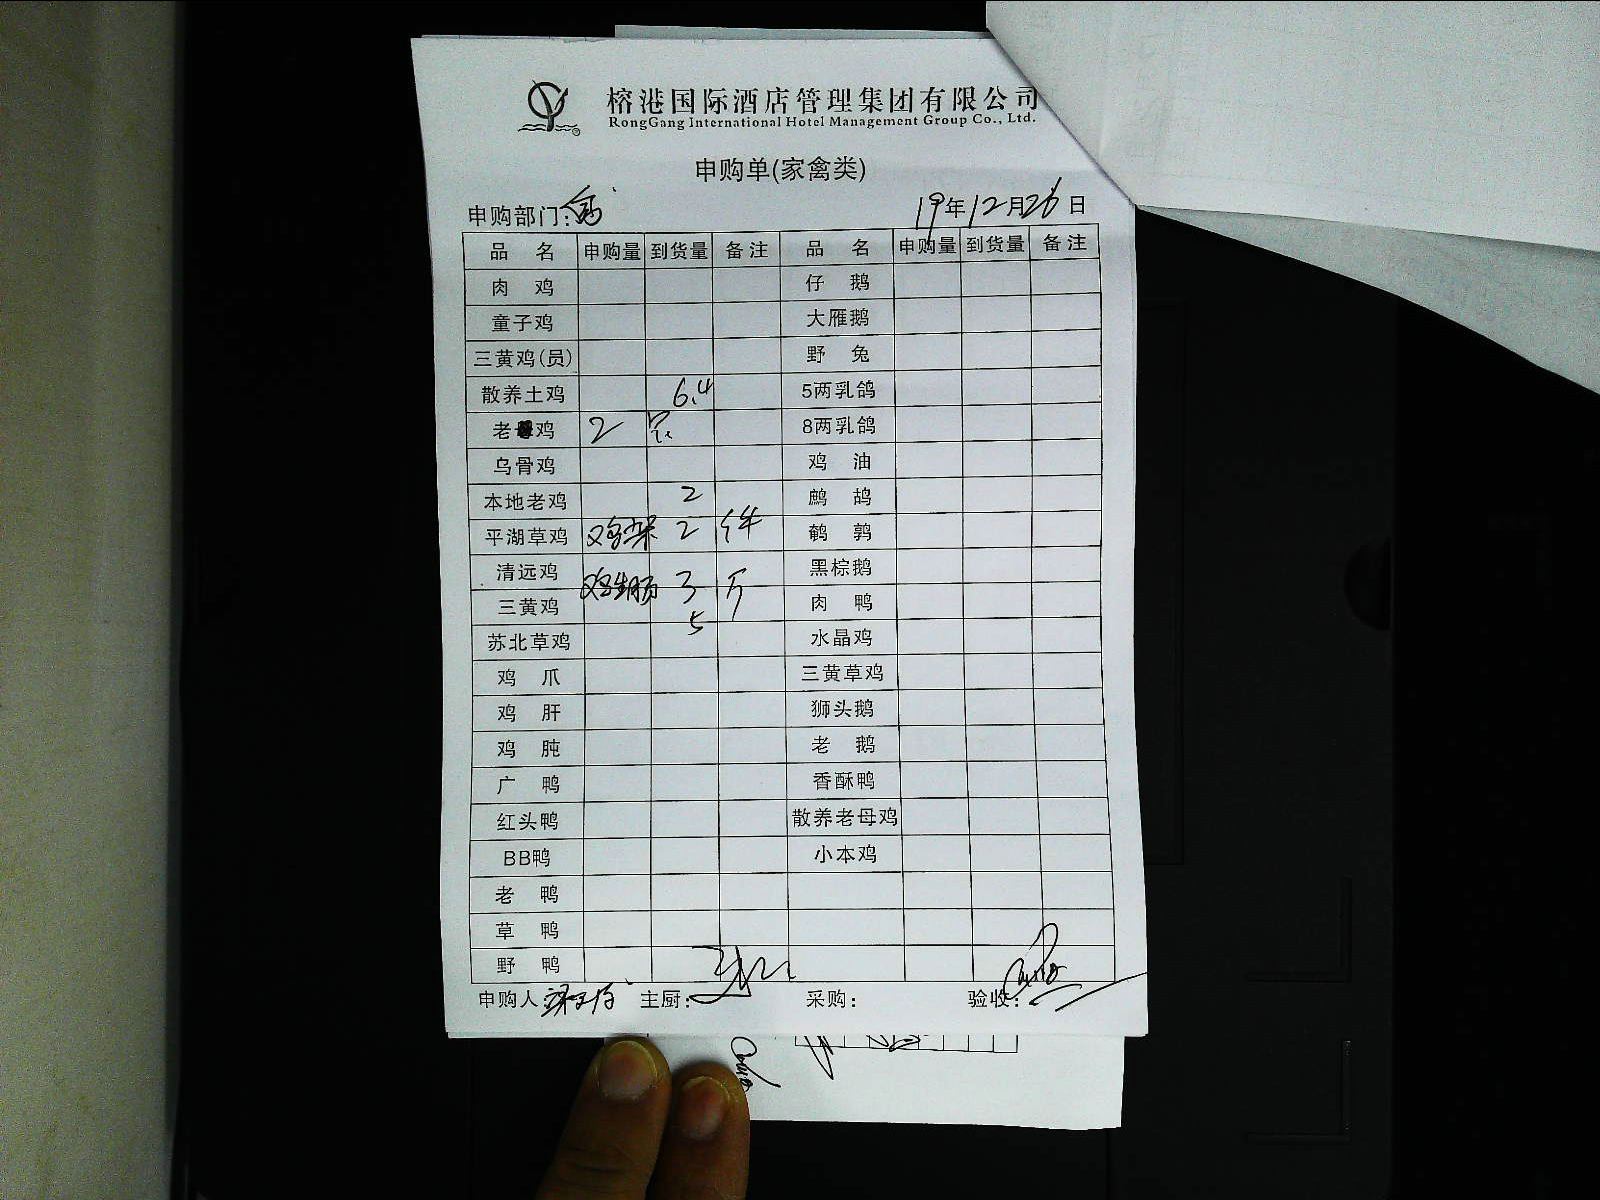 榕港国际酒店管理集团有限公司
RongGang International Hotel Management Group Co., Ltd.
申购单(家禽类)
申购部门: 19年12月26日
品 名 申购量 到货量 备注 品 名 申购量 到货量 备注
肉 鸡 仔 鹅
童子鸡 大雁鹅
三黄鸡(员) 野 兔
散养土鸡 6.4 5两乳鸽
老母鸡 2 只 8两乳鸽
乌骨鸡 鸡 油
本地老鸡 2 鹧 鸪
平湖草鸡 鸡架 2 件 鹌 鹑
清远鸡 鸡生肠 3 斤 黑棕鹅
三黄鸡 5 肉 鸭
苏北草鸡 水晶鸡
鸡 爪 三黄草鸡
鸡 肝 狮头鹅
鸡 肫 老 鹅
广 鸭 香酥鸭
红头鸭 散养老母鸡
BB鸭 小本鸡
老 鸭
草 鸭
野 鸭
申购人: 主厨: 采购: 验收: